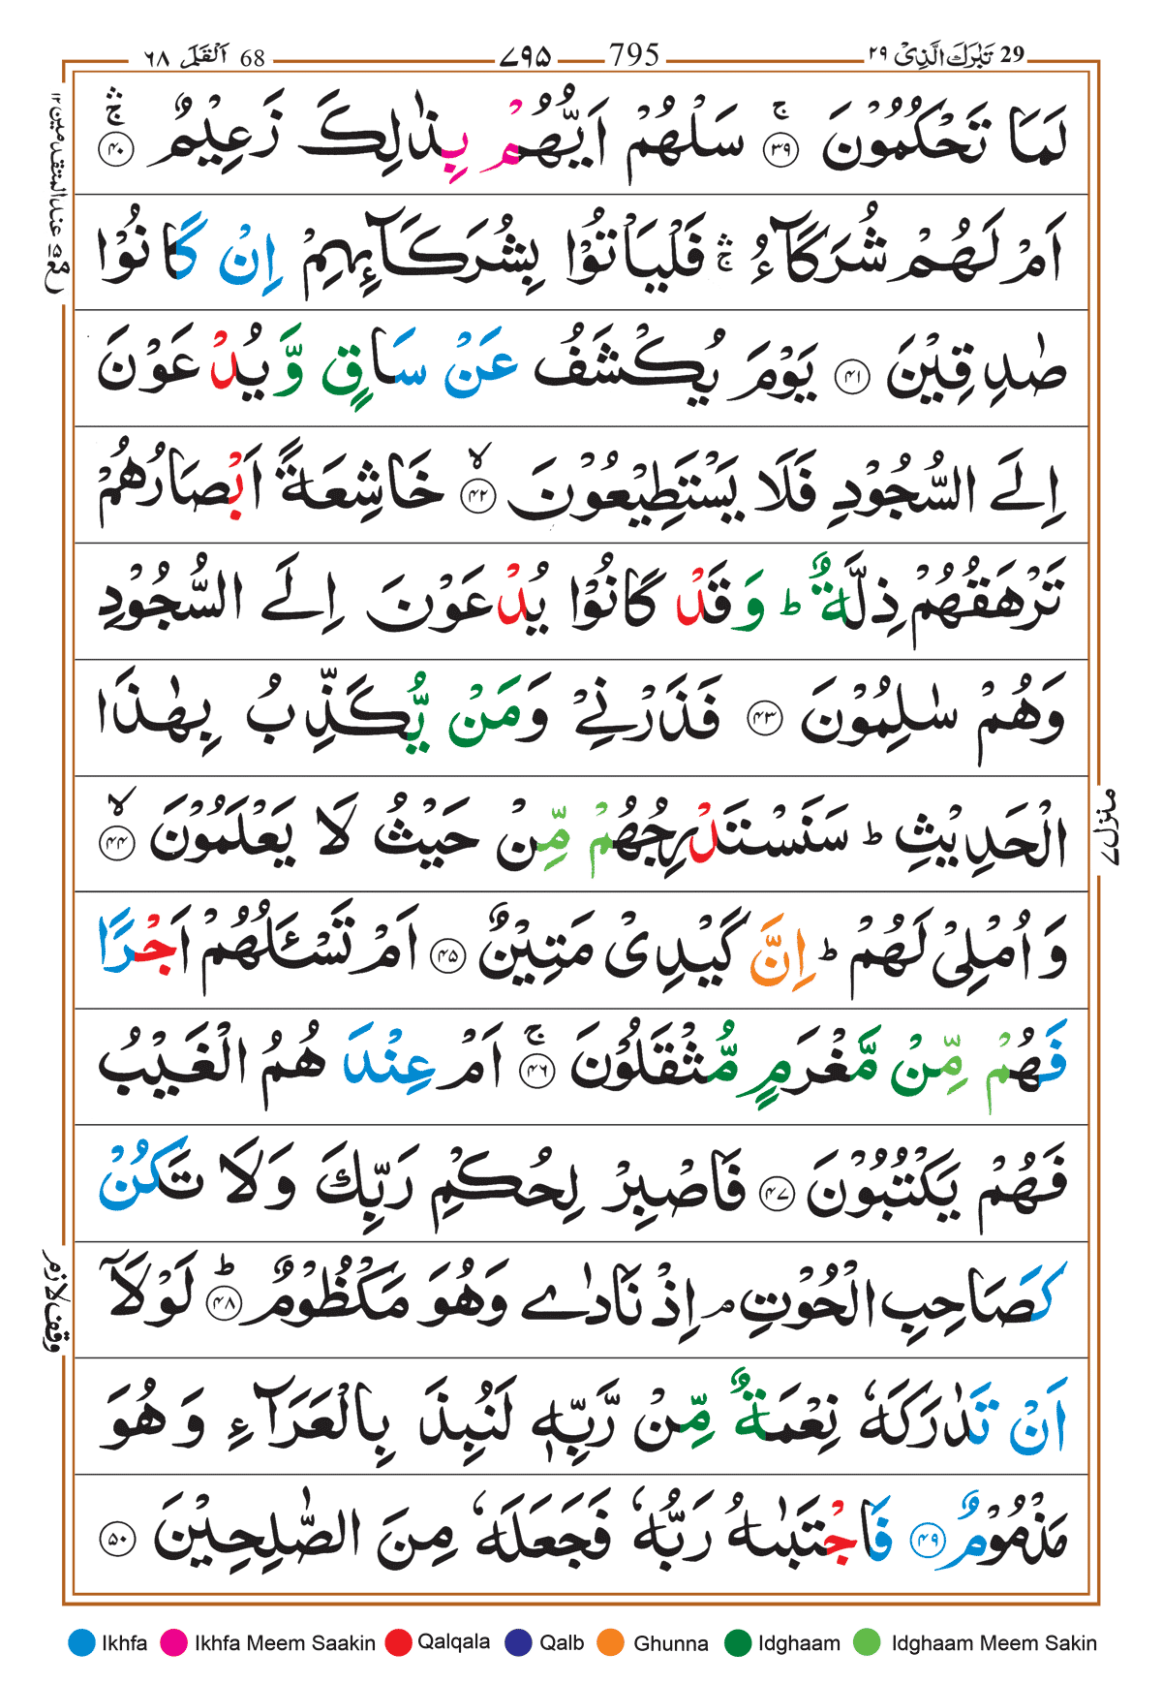 29 تَبٰرَكَ الَّذِیْ ۲۹
795 ۷۹۵
68 اَلْقَلَم ۶۸
لَمَا تَحْكُمُوْنَ ۚ ﴿۳۹﴾ سَلْهُمْ اَیُّهُمْ بِذٰلِكَ زَعِیْمٌ ۚۛ ﴿۴۰﴾
اَمْ لَهُمْ شُرَكَآءُ ۚۛ فَلْیَاْتُوْا بِشُرَكَآىِٕهِمْ اِنْ كَانُوْا
صٰدِقِیْنَ ﴿۴۱﴾ یَوْمَ یُكْشَفُ عَنْ سَاقٍ وَّیُدْعَوْنَ
اِلَی السُّجُوْدِ فَلَا یَسْتَطِیْعُوْنَ ۙ ﴿۴۲﴾ خَاشِعَةً اَبْصَارُهُمْ
تَرْهَقُهُمْ ذِلَّةٌ ؕ وَقَدْ كَانُوْا یُدْعَوْنَ اِلَی السُّجُوْدِ
وَهُمْ سٰلِمُوْنَ ﴿۴۳﴾ فَذَرْنِیْ وَمَنْ یُّكَذِّبُ بِهٰذَا
الْحَدِیْثِ ؕ سَنَسْتَدْرِجُهُمْ مِّنْ حَیْثُ لَا یَعْلَمُوْنَ ۙ ﴿۴۴﴾
وَاُمْلِیْ لَهُمْ ؕ اِنَّ كَیْدِیْ مَتِیْنٌ ﴿۴۵﴾ اَمْ تَسْـَٔلُهُمْ اَجْرًا
فَهُمْ مِّنْ مَّغْرَمٍ مُّثْقَلُوْنَ ۚ ﴿۴۶﴾ اَمْ عِنْدَهُمُ الْغَیْبُ
فَهُمْ یَكْتُبُوْنَ ﴿۴۷﴾ فَاصْبِرْ لِحُكْمِ رَبِّكَ وَلَا تَكُنْ
كَصَاحِبِ الْحُوْتِ ۘ اِذْ نَادٰی وَهُوَ مَكْظُوْمٌ ؕ ﴿۴۸﴾ لَوْلَاۤ
اَنْ تَدٰرَكَهٗ نِعْمَةٌ مِّنْ رَّبِّهٖ لَنُبِذَ بِالْعَرَآءِ وَهُوَ
مَذْمُوْمٌ ﴿۴۹﴾ فَاجْتَبٰىهُ رَبُّهٗ فَجَعَلَهٗ مِنَ الصّٰلِحِیْنَ ﴿۵۰﴾
مع عند المتقدمین ۱۲
وقف لازم
منزل ۷
Ikhfa Ikhfa Meem Saakin Qalqala Qalb Ghunna Idghaam Idghaam Meem Sakin